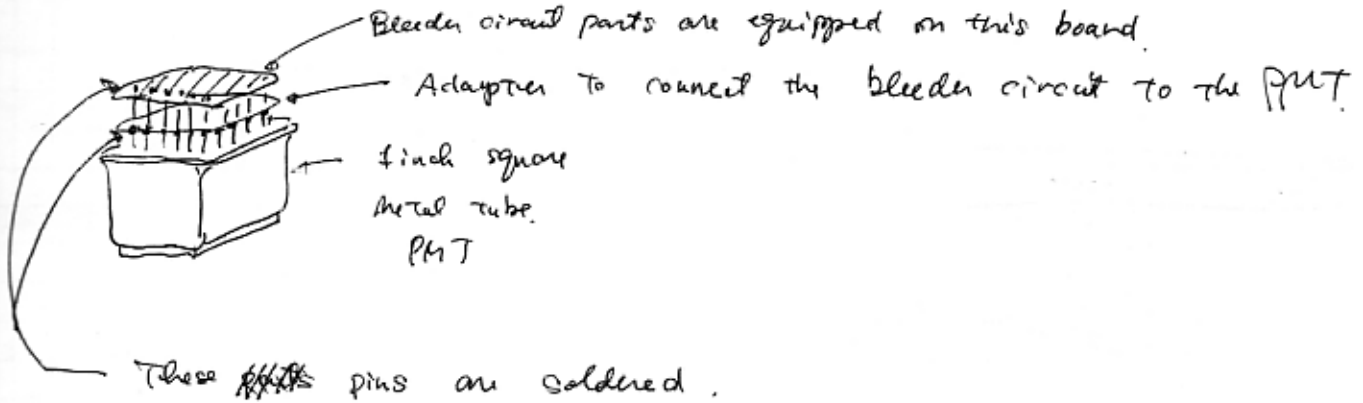 Bleeder circuit parts are equipped on this board.
Adapter to connect the bleeder circuit to the PMT.
1 inch square
metal tube.
PMT
These pins are soldered.